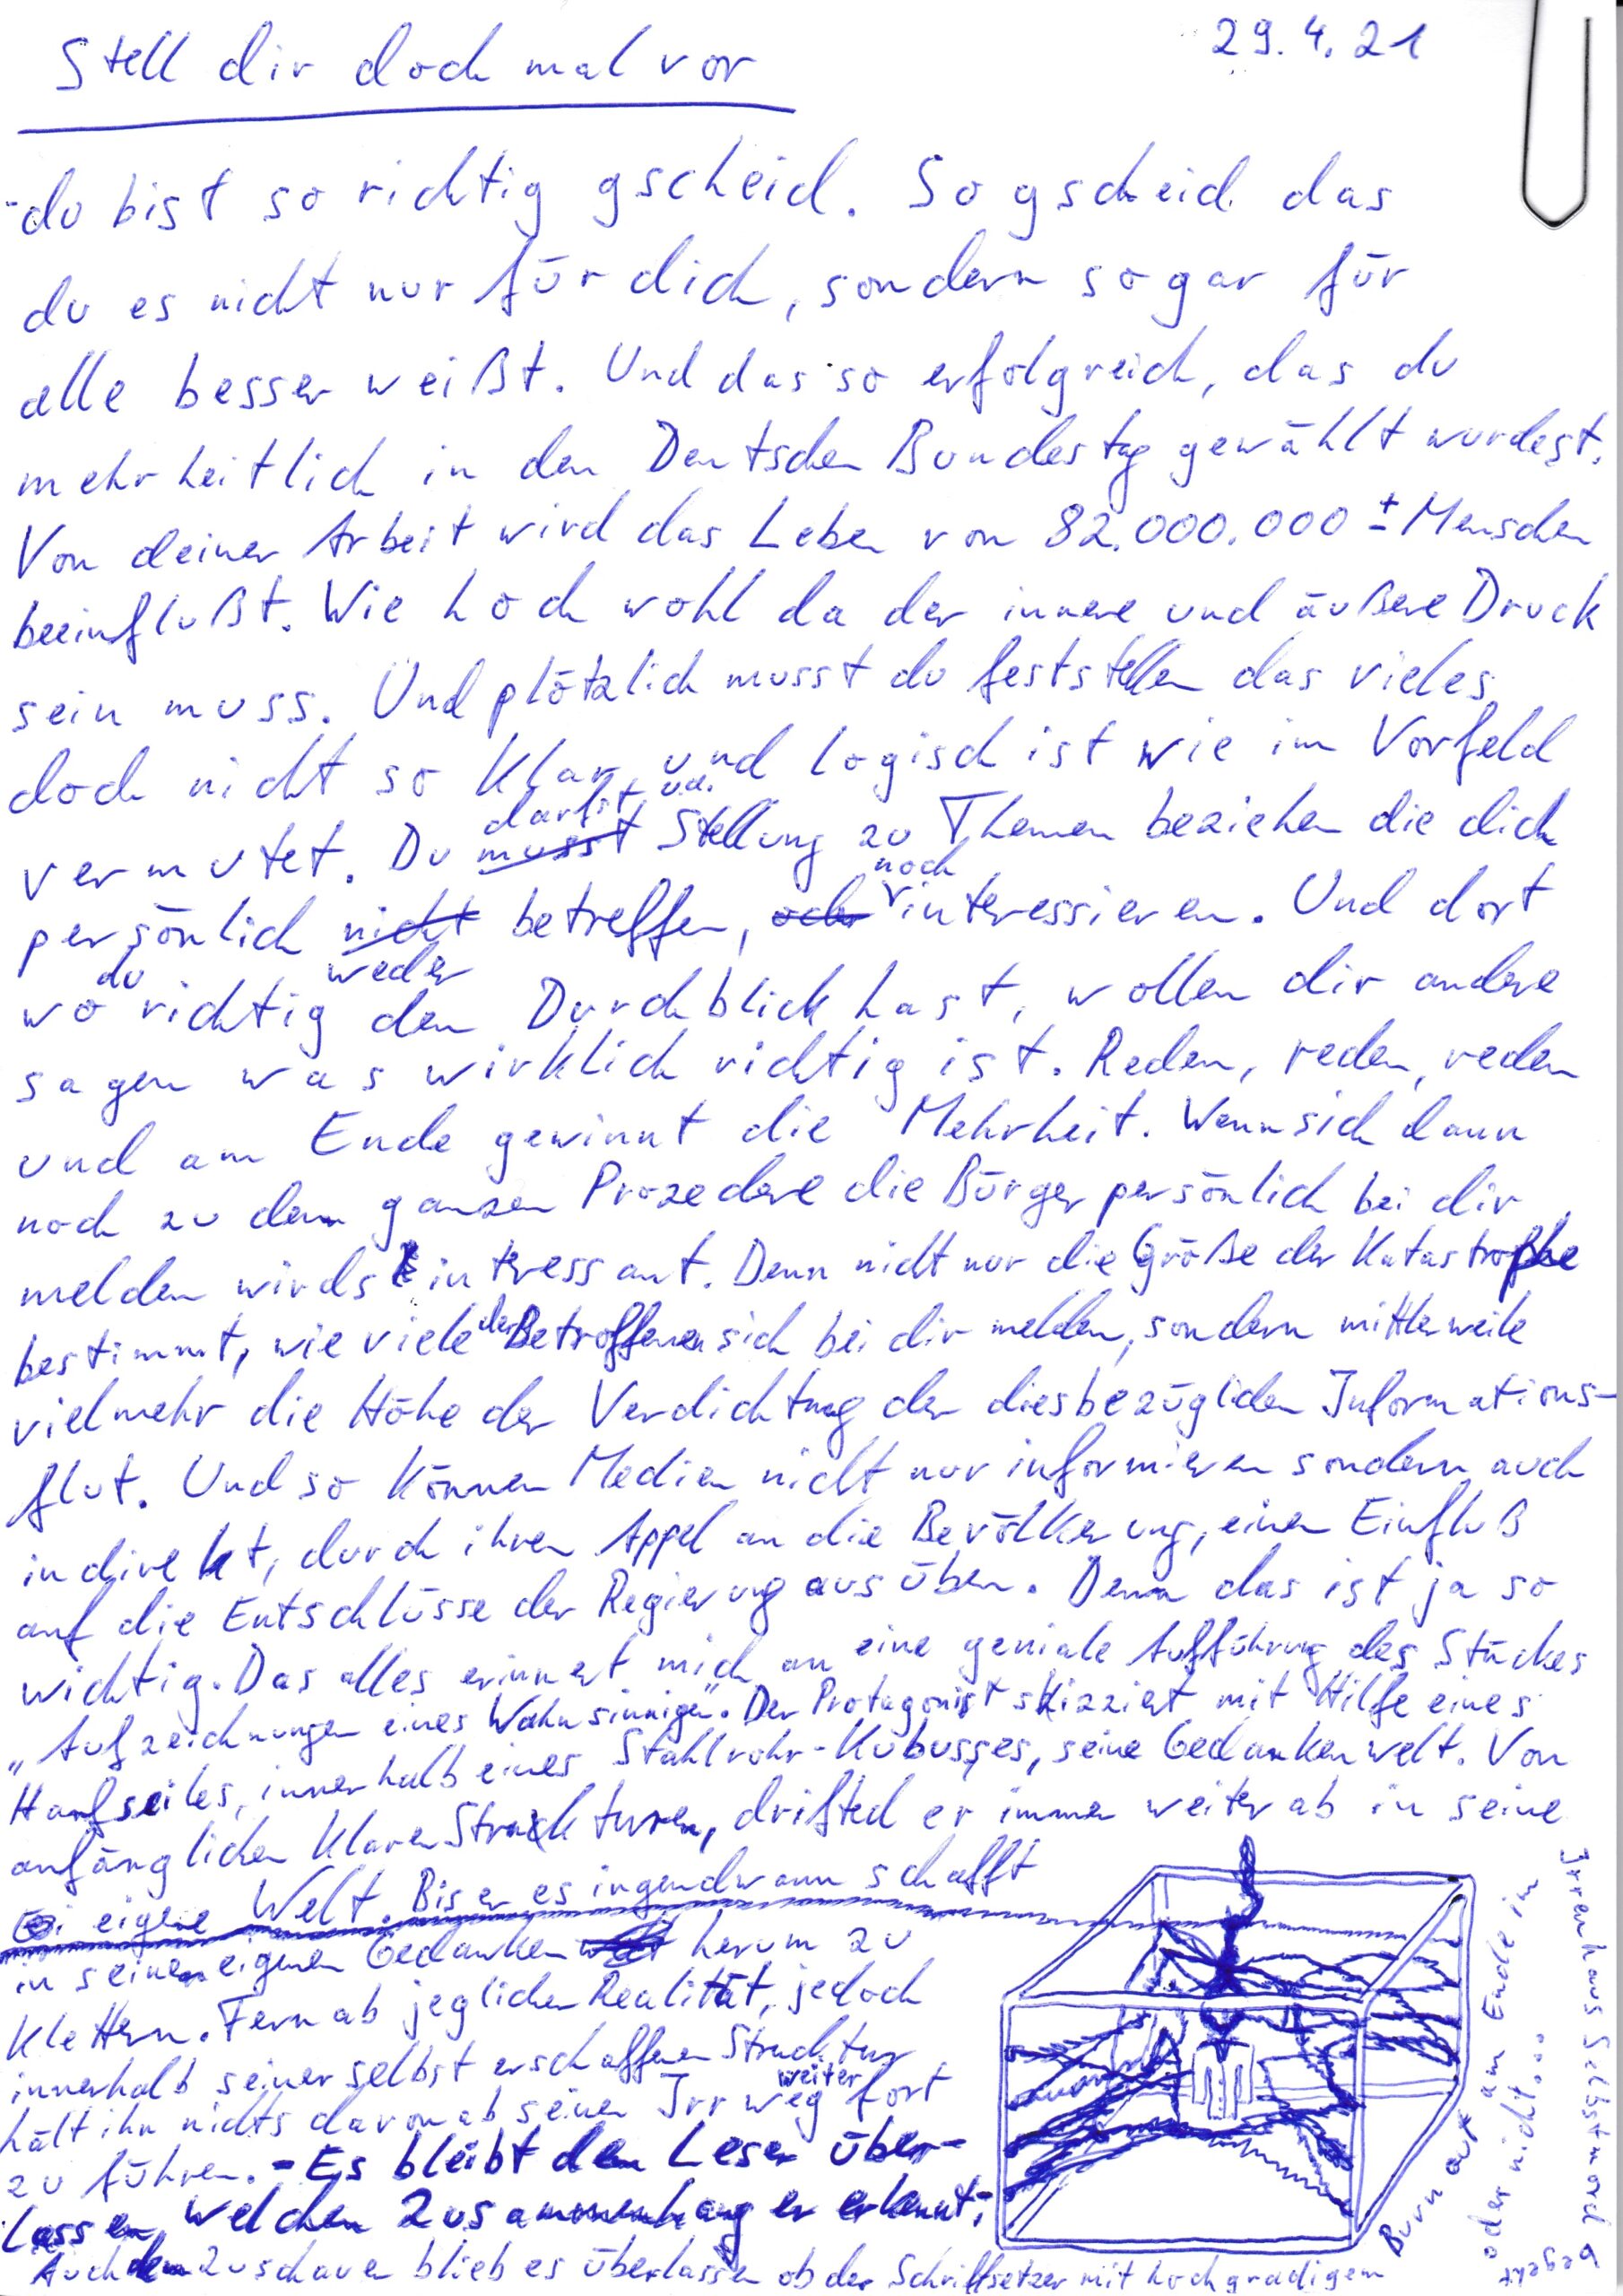 Stell dir doch mal vor
29.4.21
du bist so richtig gscheid. So gscheid das
du es nicht nur für dich, sondern sogar für
alle besser weißt. Und das so erfolgreich, das du
mehrheitlich in den Deutschen Bundestag gewählt wurdest.
Von deiner Arbeit wird das Leben von 82.000.000 ± Menschen
beeinflußt. Wie hoch wohl da der innere und äußere Druck
sein muss. Und plötzlich musst du feststellen das vieles
doch nicht so klar und logisch ist wie im Vorfeld
darfst u.a.
vermutet. Du musst Stellung zu Themen beziehen die dich
noch
persönlich nicht betreffen, oder interessieren. Und dort
du weder
wo richtig den Durchblick hast, wollen dir andere
sagen was wirklich richtig ist. Reden, reden, reden
und am Ende gewinnt die Mehrheit. Wenn sich dann
noch zu dem ganzen Prozedere die Bürger persönlich bei dir
melden wirds intressant. Denn nicht nur die Größe der Katastrophe
bestimmt, wie viele der Betroffenen sich bei dir melden, sondern mittlerweile
vielmehr die Höhe der Verdichtung der diesbezüglichen Informations-
flut. Und so können Medien nicht nur informieren sondern auch
indirekt, durch ihren Appel an die Bevölkerung, einen Einfluß
auf die Entschlüsse der Regierung ausüben. Denn das ist ja so
wichtig. Das alles erinnert mich an eine geniale Aufführung des Stückes
„Aufzeichnungen eines Wahnsinnigen". Der Protagonist skizziert mit Hilfe eines
Hanfseiles, innerhalb eines Stahlrohr-Kubusses, seine Gedankenwelt. Von
anfänglichen klaren Strukturen, drifted er immer weiter ab in seine
eigene Welt. Bis er es irgendwann schafft
in seinen eigenen Gedanken herum zu
klettern. Fernab jeglicher Realität, jedoch
innerhalb seiner selbst erschaffenen Strucktur
weiter
hält ihn nichts davon ab seinen Irrweg fort
zu führen. - Es bleibt dem Leser über-
lassen, welchen Zusammenhang er erkennt;
Auch dem Zuschauer blieb es überlassen ob der Schriftsetzer mit hochgradigem
Burn out am Ende im
Irrenhaus Selbstmord begeht
oder nicht....